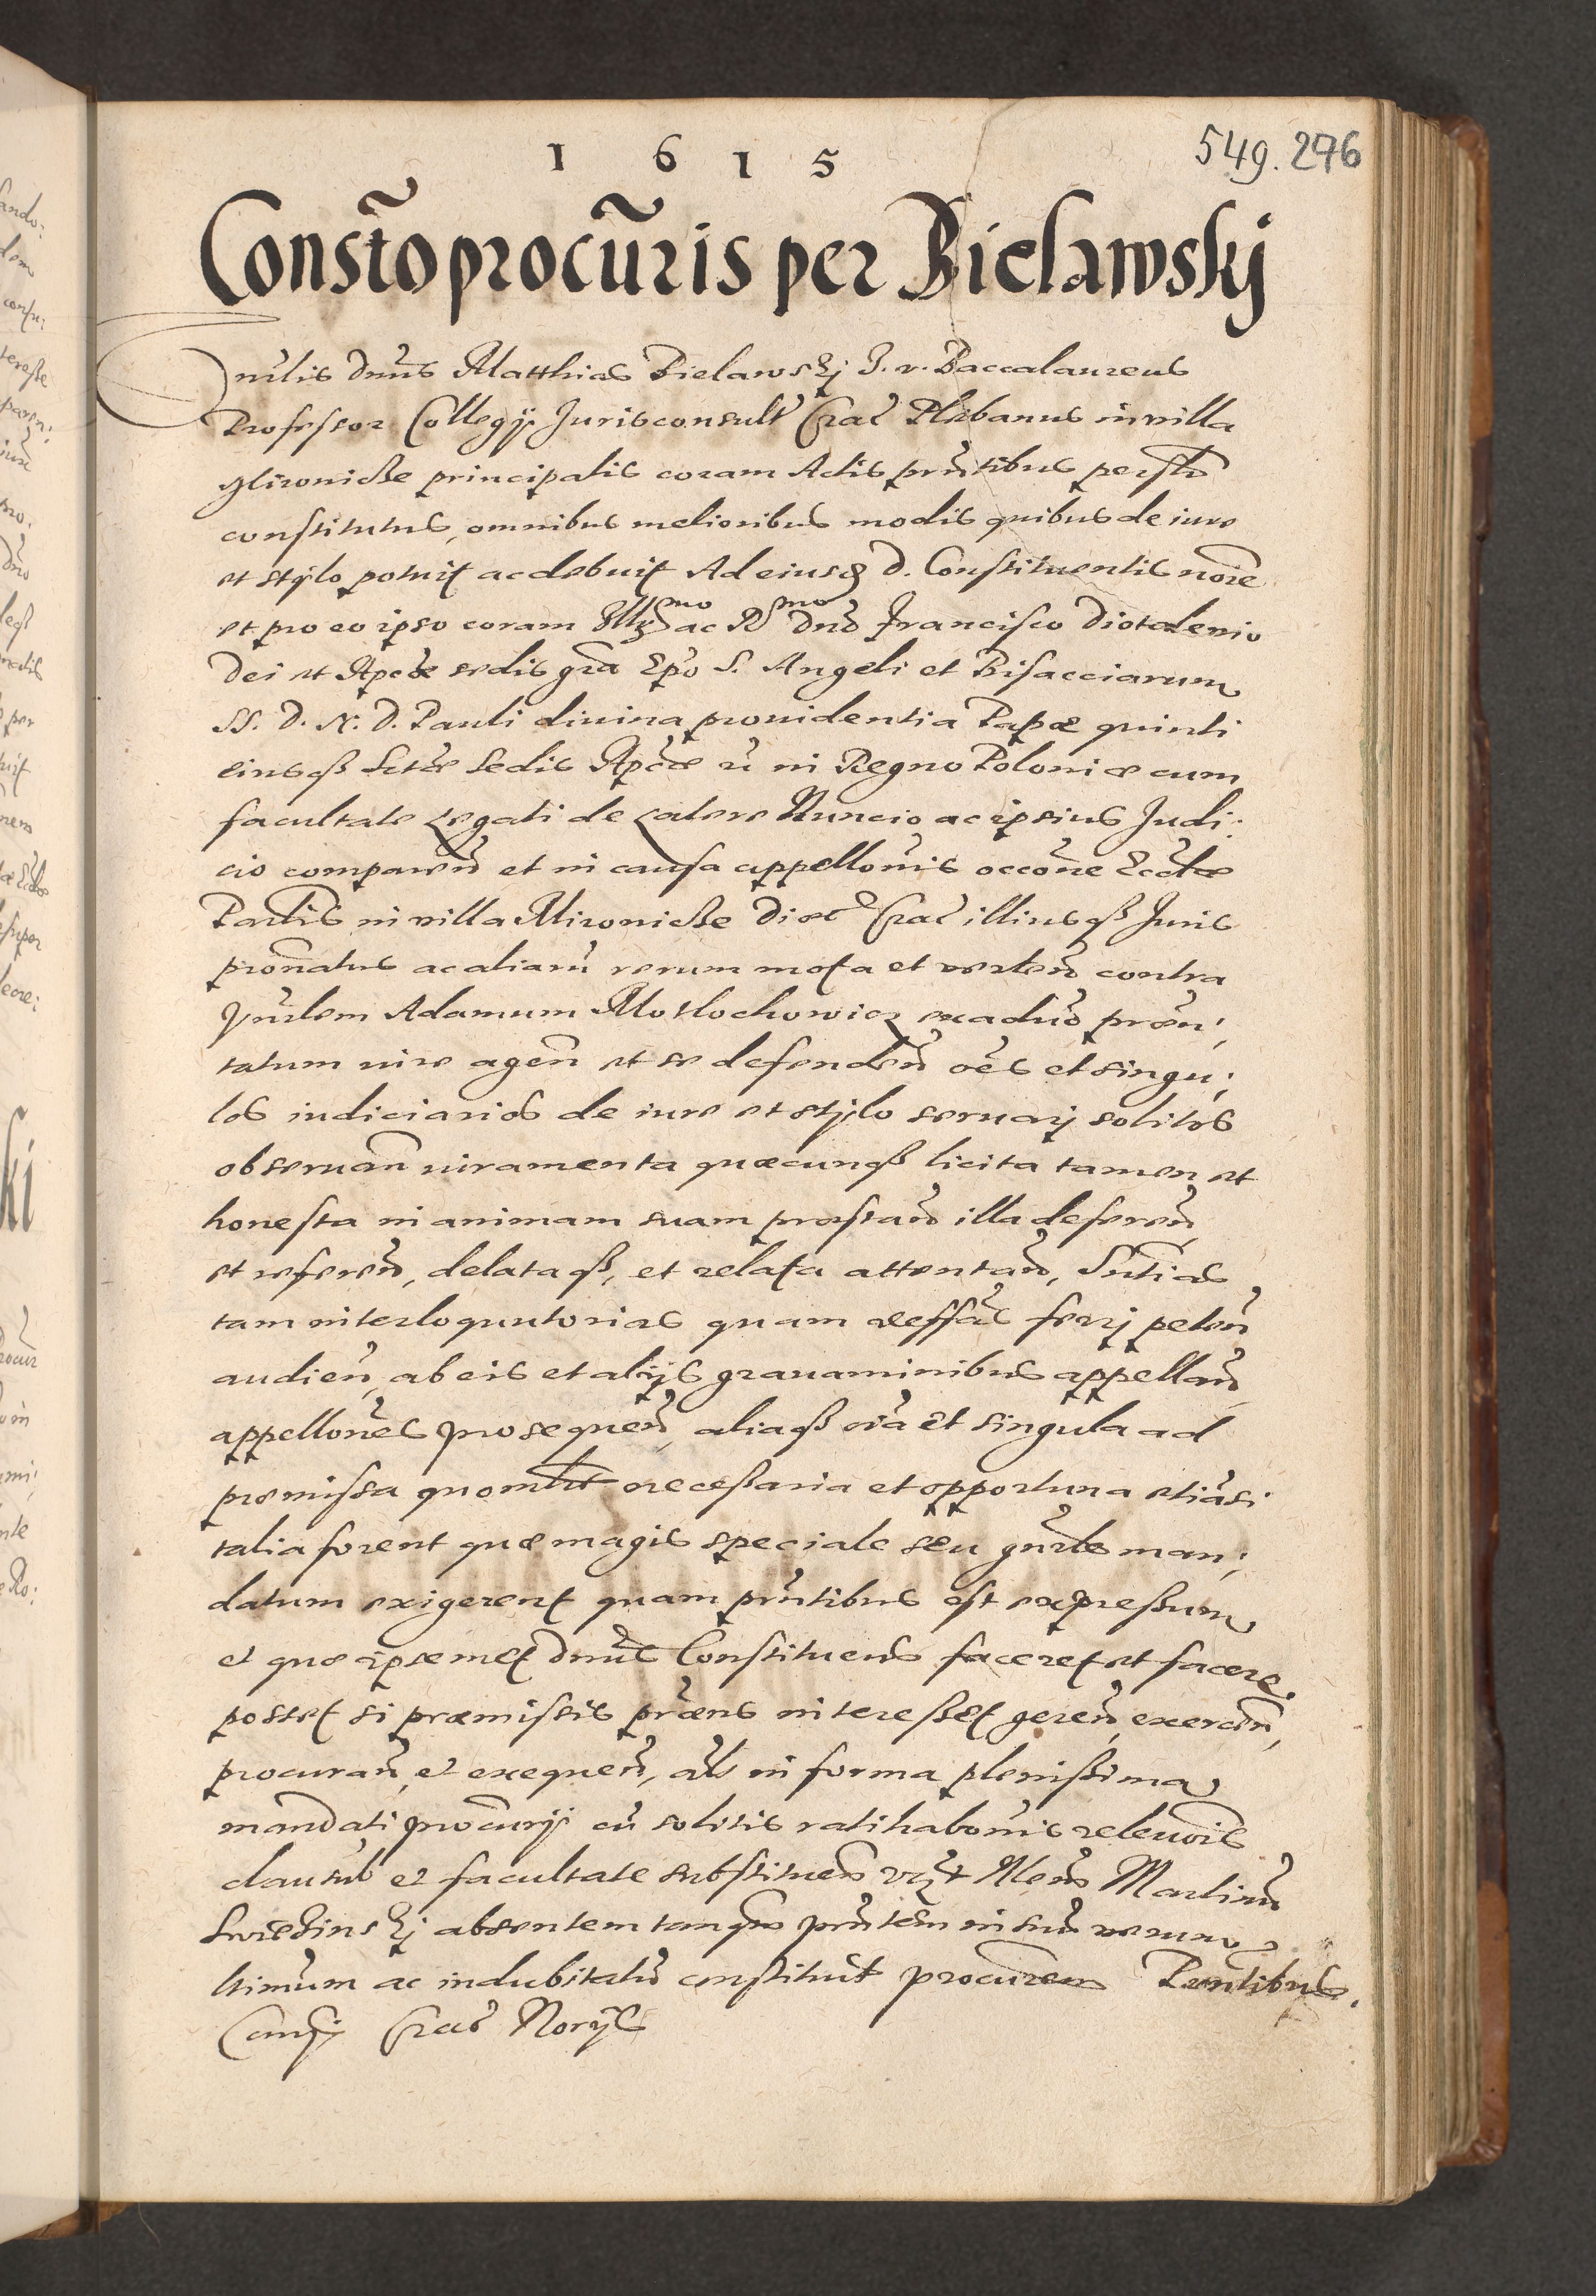 1 6 1 5
549. 276
Constõ procũris per Bielawskj
nrlis dnus Matthias Bielawskj J. v. Baccalaureus
Professor Collegij Jurisconsult Crac Plebanus in villa
Mironicße principalis coram Actis prntibus persłr
constitutus, omnibus melioribus modis quibus de iure
et stylo potuit ac debuit Ad eiusd d. Constituentis nõie
et pro eo ipso coram Illmo ac Rmo dno Francisco Diotalenio
Dei et Apcæ sedis gra Epo S. Angeli et Bisacciarum
SS. D. N. D. Pauli diuina prouidentia Papæ quinti
eiusqß Sctæ Sedis Apcæ in Regno Poloniæ cum
facultate Legati de Latere Nuncio ac ipsius Judi:
cio comparen et in causa appellonis occone Ecclæ
Parlis in villa Mironicße Dioc Crac illiusqß Juris
pronatus ac aliaru rerum mota et verten contra
Adamum exaduo præn:
tatum iure agen et se defenden oes et singu:
los iudiciarios de iure et stylo seruarj solitos
obseruan iuramenta quæcunqß licita tamen et
honesta in animam suam præstan illa deferen
et referen, delataqß, et relata attentan, Sntias
tam interloquutorias quam deffas ferrj peten
audien, ab eis et alijs grauaminibus appellan
appellones prosequen, aliaqß oia et singula ad
premissa quomlbt necessaria et opportuna etiasi
talia forent quæ magis speciale seu gnrle man:
datum exigerent quam prntibus est expressum
et quæ ipsemet dnus Constituens faceret et facere
posset si præmissis præns interesset geren, exercen,
procuran, et exequen, als in forma plenissima
mandati procurij cu solitis ratihabonis releuõis
clausul et facultate substituen Martinu
absentem tanq prntem in suu verum
ltimum ac indubitatu constituit procurem Prntibus.
Crac Norijs